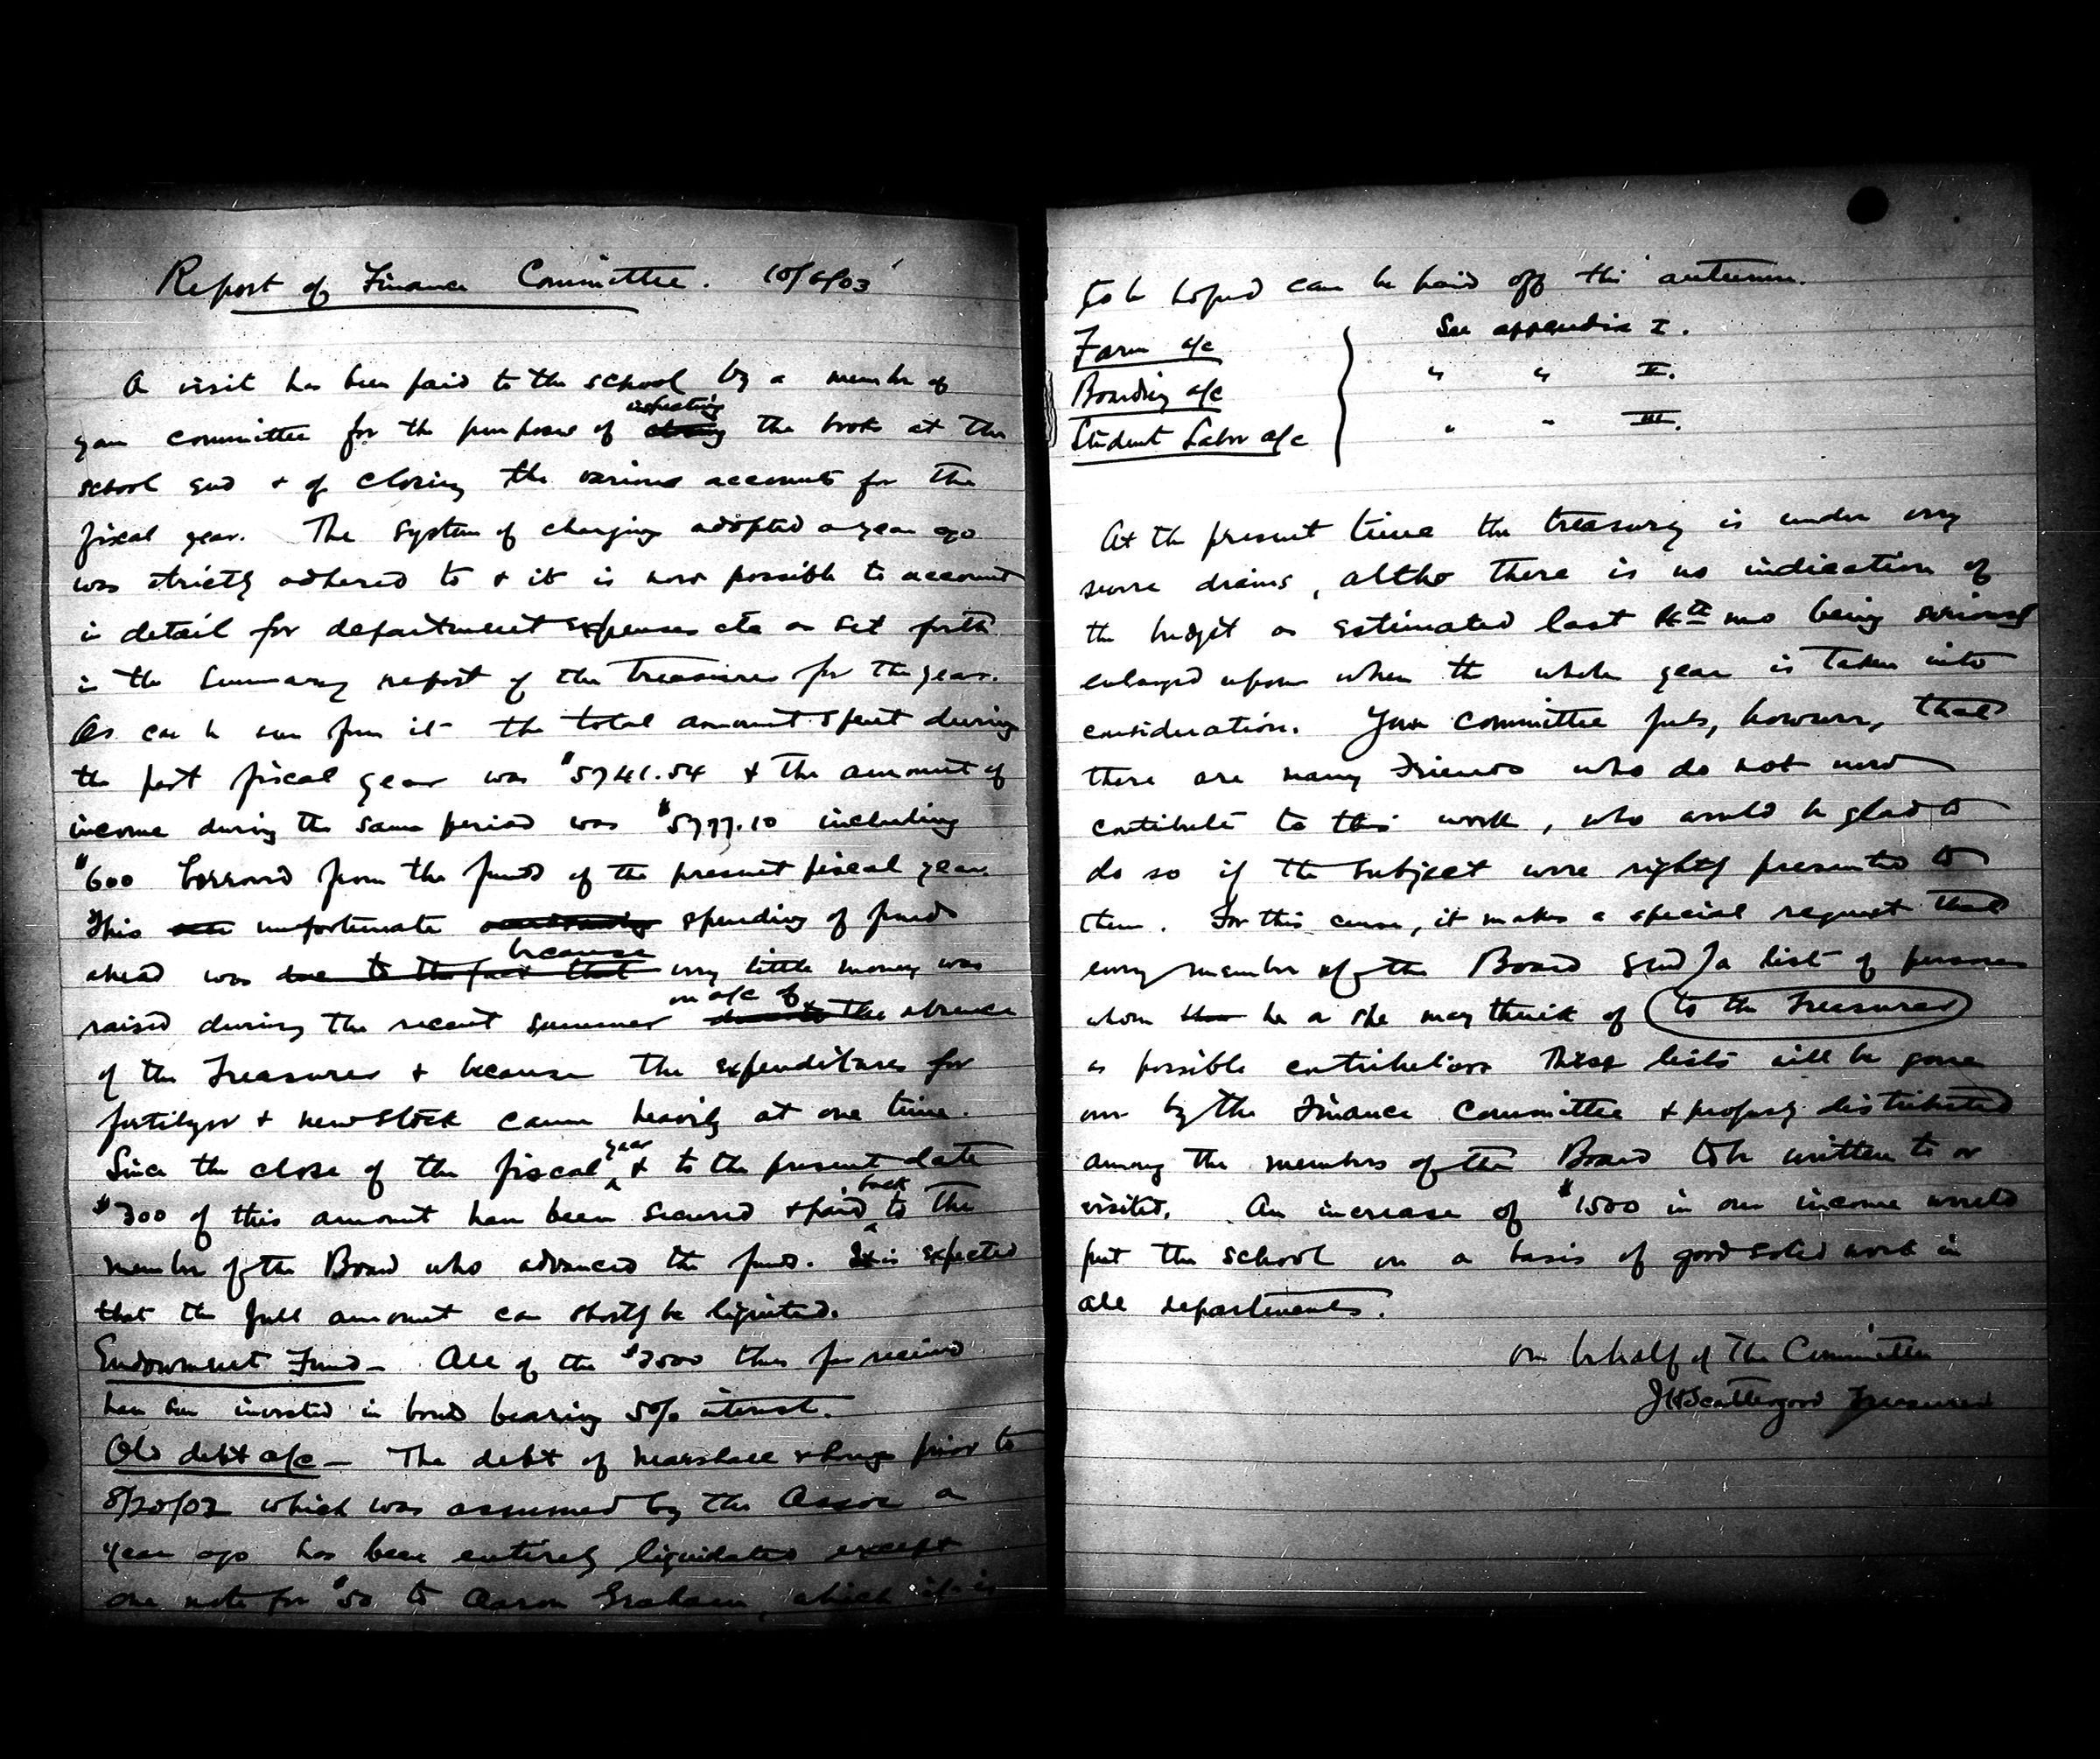 Report of Finance Committee. 10/6/03
A visit has been paid to the school by a member of
your committee for the purposes of inspecting the books at the
school end & of closing the various accounts for the
fiscal year. The system of charging adopted a year ago
was strictly adhered to & it is now possible to account
in detail for department expenses etc as set forth
in the Summary report of the treasurer for the year.
As can be seen from it the total amount spent during
the past fiscal year was $5741.54 & the amount of
income during the same period was $5777.10 including
$600 borrowed from the funds of the present fiscal year.
This unfortunate spending of funds
ahead was due to the fact that because very little money was
raised during the recent summer on a/c of the absence
of the Treasurer & because the expenditures for
fertilizer & new stock came heavily at one time.
Since the close of the fiscal year & to the present date
$300 of this amount have been secured & paid back to the
member of the Board who advanced the funds. It is expected
that the full amount can shortly be liquited.
Endowment Fund - All of the $2500 thus far received
has been invested in bonds bearing 5% interest.
Old debt a/c - The debt of Marshall & prior to
8/20/02 which was assumed by the Assoc a
year ago has been entirely liquidated except
one note for $50 to Aaron Graham, which it is
to be hoped can be paid off this autumn.
Farm a/c See appendix I.
Boarding a/c " " II.
Student Labor a/c " " III.
At the present time the treasury is under very
severe drains, altho there is no indication of
the budget as estimated last 4th mo being seriously
enlarged upon when the whole year is taken into
consideration. Your committee feels, however, that
there are many Friends who do not now
contribute to this work, who would be glad to
do so if the subject were rightly presented to
them. For this cause, it makes a special request that
every member of the Board send a list of persons
whom he or she may think of to the Treasurer
as possible contributors These lists will be gone
over by the Finance Committee & properly distributed
among the members of the Board to be written to or
visited. An increase of $1500 in our income would
put the school on a basis of good solid work in
all departments.
On behalf of the Committee
JHScattergood Treasurer